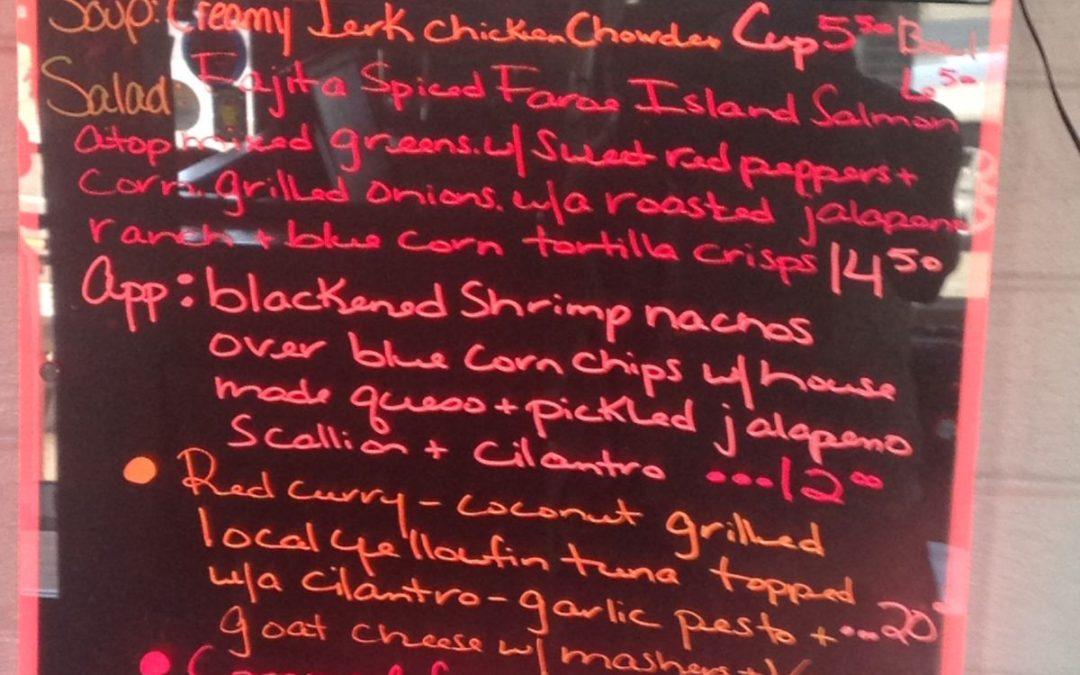 Soup: Creamy Jerk Chicken Chowder Cup 5.50 Bowl 6.50
Salad: Fajita Spiced Faroe Island Salmon
atop mixed greens w/ Sweet red peppers +
corn. grilled onions. w/a roasted jalapeno
ranch + blue corn tortilla crisps 14 50
App: blackened Shrimp nachos
over blue corn chips w/ house
made queso + pickled jalapeno
Scallion + cilantro ...12 00
• Red curry - coconut grilled
local yellowfin tuna topped
w/a cilantro-garlic pesto + ...20
goat cheese w/ mashers +